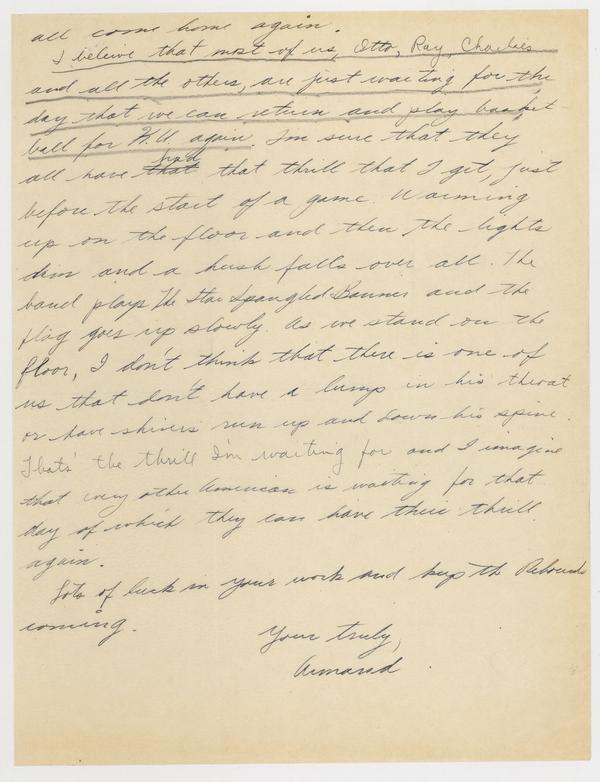 all come home again.
I beleive that most of us, Otto, Ray, Charlies
and all the others, are just waiting for the
day that we can return and play basket
ball for K.U. again. I'm sure that they
all have that had that thrill that I get, just
before the start of a game. Warming
up on the floor and then the lights
dim and a hush falls over all. The
band plays The Star Spangled Banner and the
flag goes up slowly. As we stand on the
floor, I don't think that there is one of
us that don't have a lump in his throat
or have shivers run up and down his spine.
Thats' the thrill I'm waiting for and I imagine
that every other American is waiting for that
day of which they can have their thrill
again.
Lots of luck in your work and keep the Rebounds
coming.
Your truly,
Armand